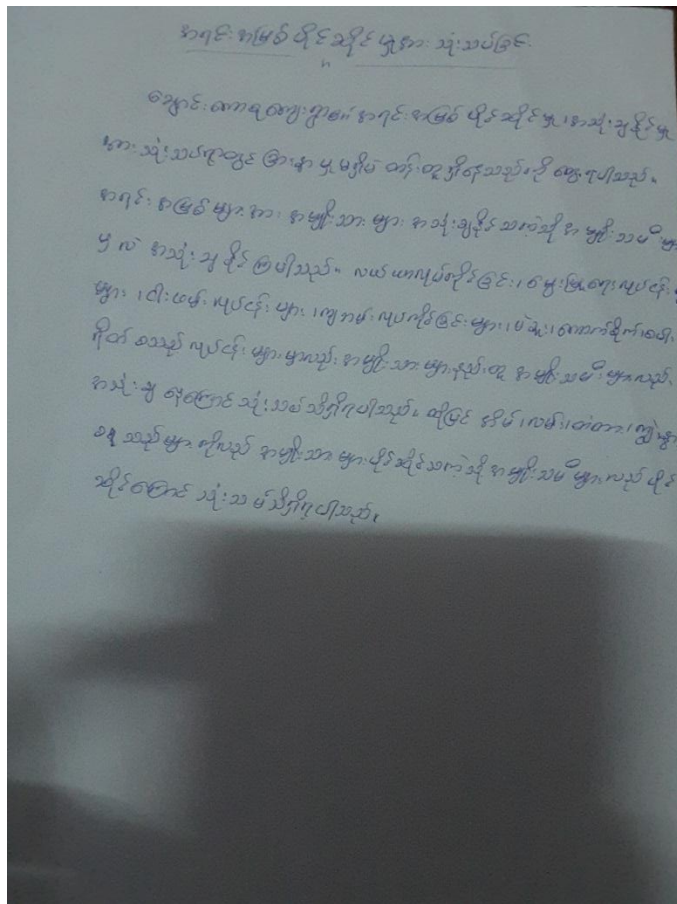 အရင်းအမြစ် ပိုင်ဆိုင်မှုအား သုံးသပ်ခြင်း
ချောင်း ကျေးရွာ၏ အရင်းအမြစ် ပိုင်ဆိုင်မှု၊ အသုံးချနိုင်မှု
အား သုံးသပ်ရာတွင် ခြားနားမှုမရှိပဲ တန်းတူရှိနေသည်ကို တွေ့ရပါသည်။
အရင်းအမြစ်များအား အမျိုးသားများ အသုံးချနိုင်သကဲ့သို့ အမျိုးသမီးများ
မှလဲ အသုံးချနိုင်ကြပါသည်။ လယ်ယာလုပ်ကိုင်ခြင်း၊ မွေးမြူရေးလုပ်ငန်း
များ၊ ငါးဖမ်းလုပ်ငန်းများ၊ ကျဘမ်းလုပ်ကိုင်ခြင်းများ၊ ကောက်စိုက်၊
ရိတ် စသည့် လုပ်ငန်းများမှာလည်း အမျိုးသားများနည်းတူ အမျိုးသမီးများလည်း
အသုံးချနေကြောင်း သုံးသပ်သိရှိရပါသည်။ ထို့ပြင် အိမ်၊ လမ်း၊ တံတား၊ ကျွဲ၊ နွား
စသည်များကိုလည်း အမျိုးသားများပိုင်ဆိုင်သကဲ့သို့ အမျိုးသမီးများလည်း ပိုင်
ဆိုင်ကြောင်း သုံးသပ်သိရှိရပါသည်။